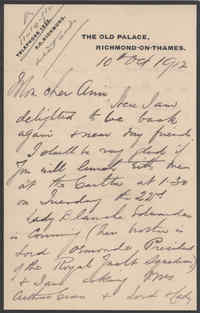 THE OLD PALACE,
RICHMOND-ON-THAMES.
TELEPHONE 1338.
P.O. RICHMOND.
10th Oct 1912
Mon cher Ami
Here I am
delighted to be back
again & near my friends
I shall be very glad if
You will lunch with me
at the Carlton at 1-30
on Tuesday the 22d
Lady Blanche
is coming (her brother is
Lord Ormonde, President
of the Royal Yacht Squadron)
& I am asking Mrs
Arthur & Lord & Lady